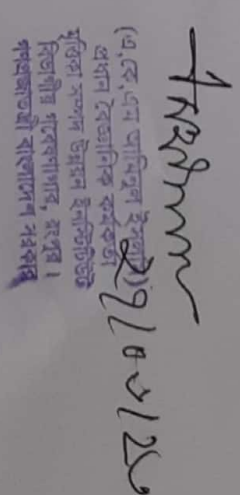 (এ,কে,এম আমিনুল ইসলাম)
প্রধান বৈজ্ঞানিক কর্মকর্তা
মৃত্তিকা সম্পদ উন্নয়ন ইনস্টিটিউট
বিভাগীয় গবেষণাগার, রংপুর।
গণপ্রজাতন্ত্রী বাংলাদেশ সরকার